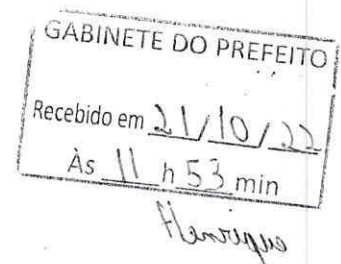 GABINETE DO PREFEITO
Recebido em 21/10/22
Às 11 h 53 min